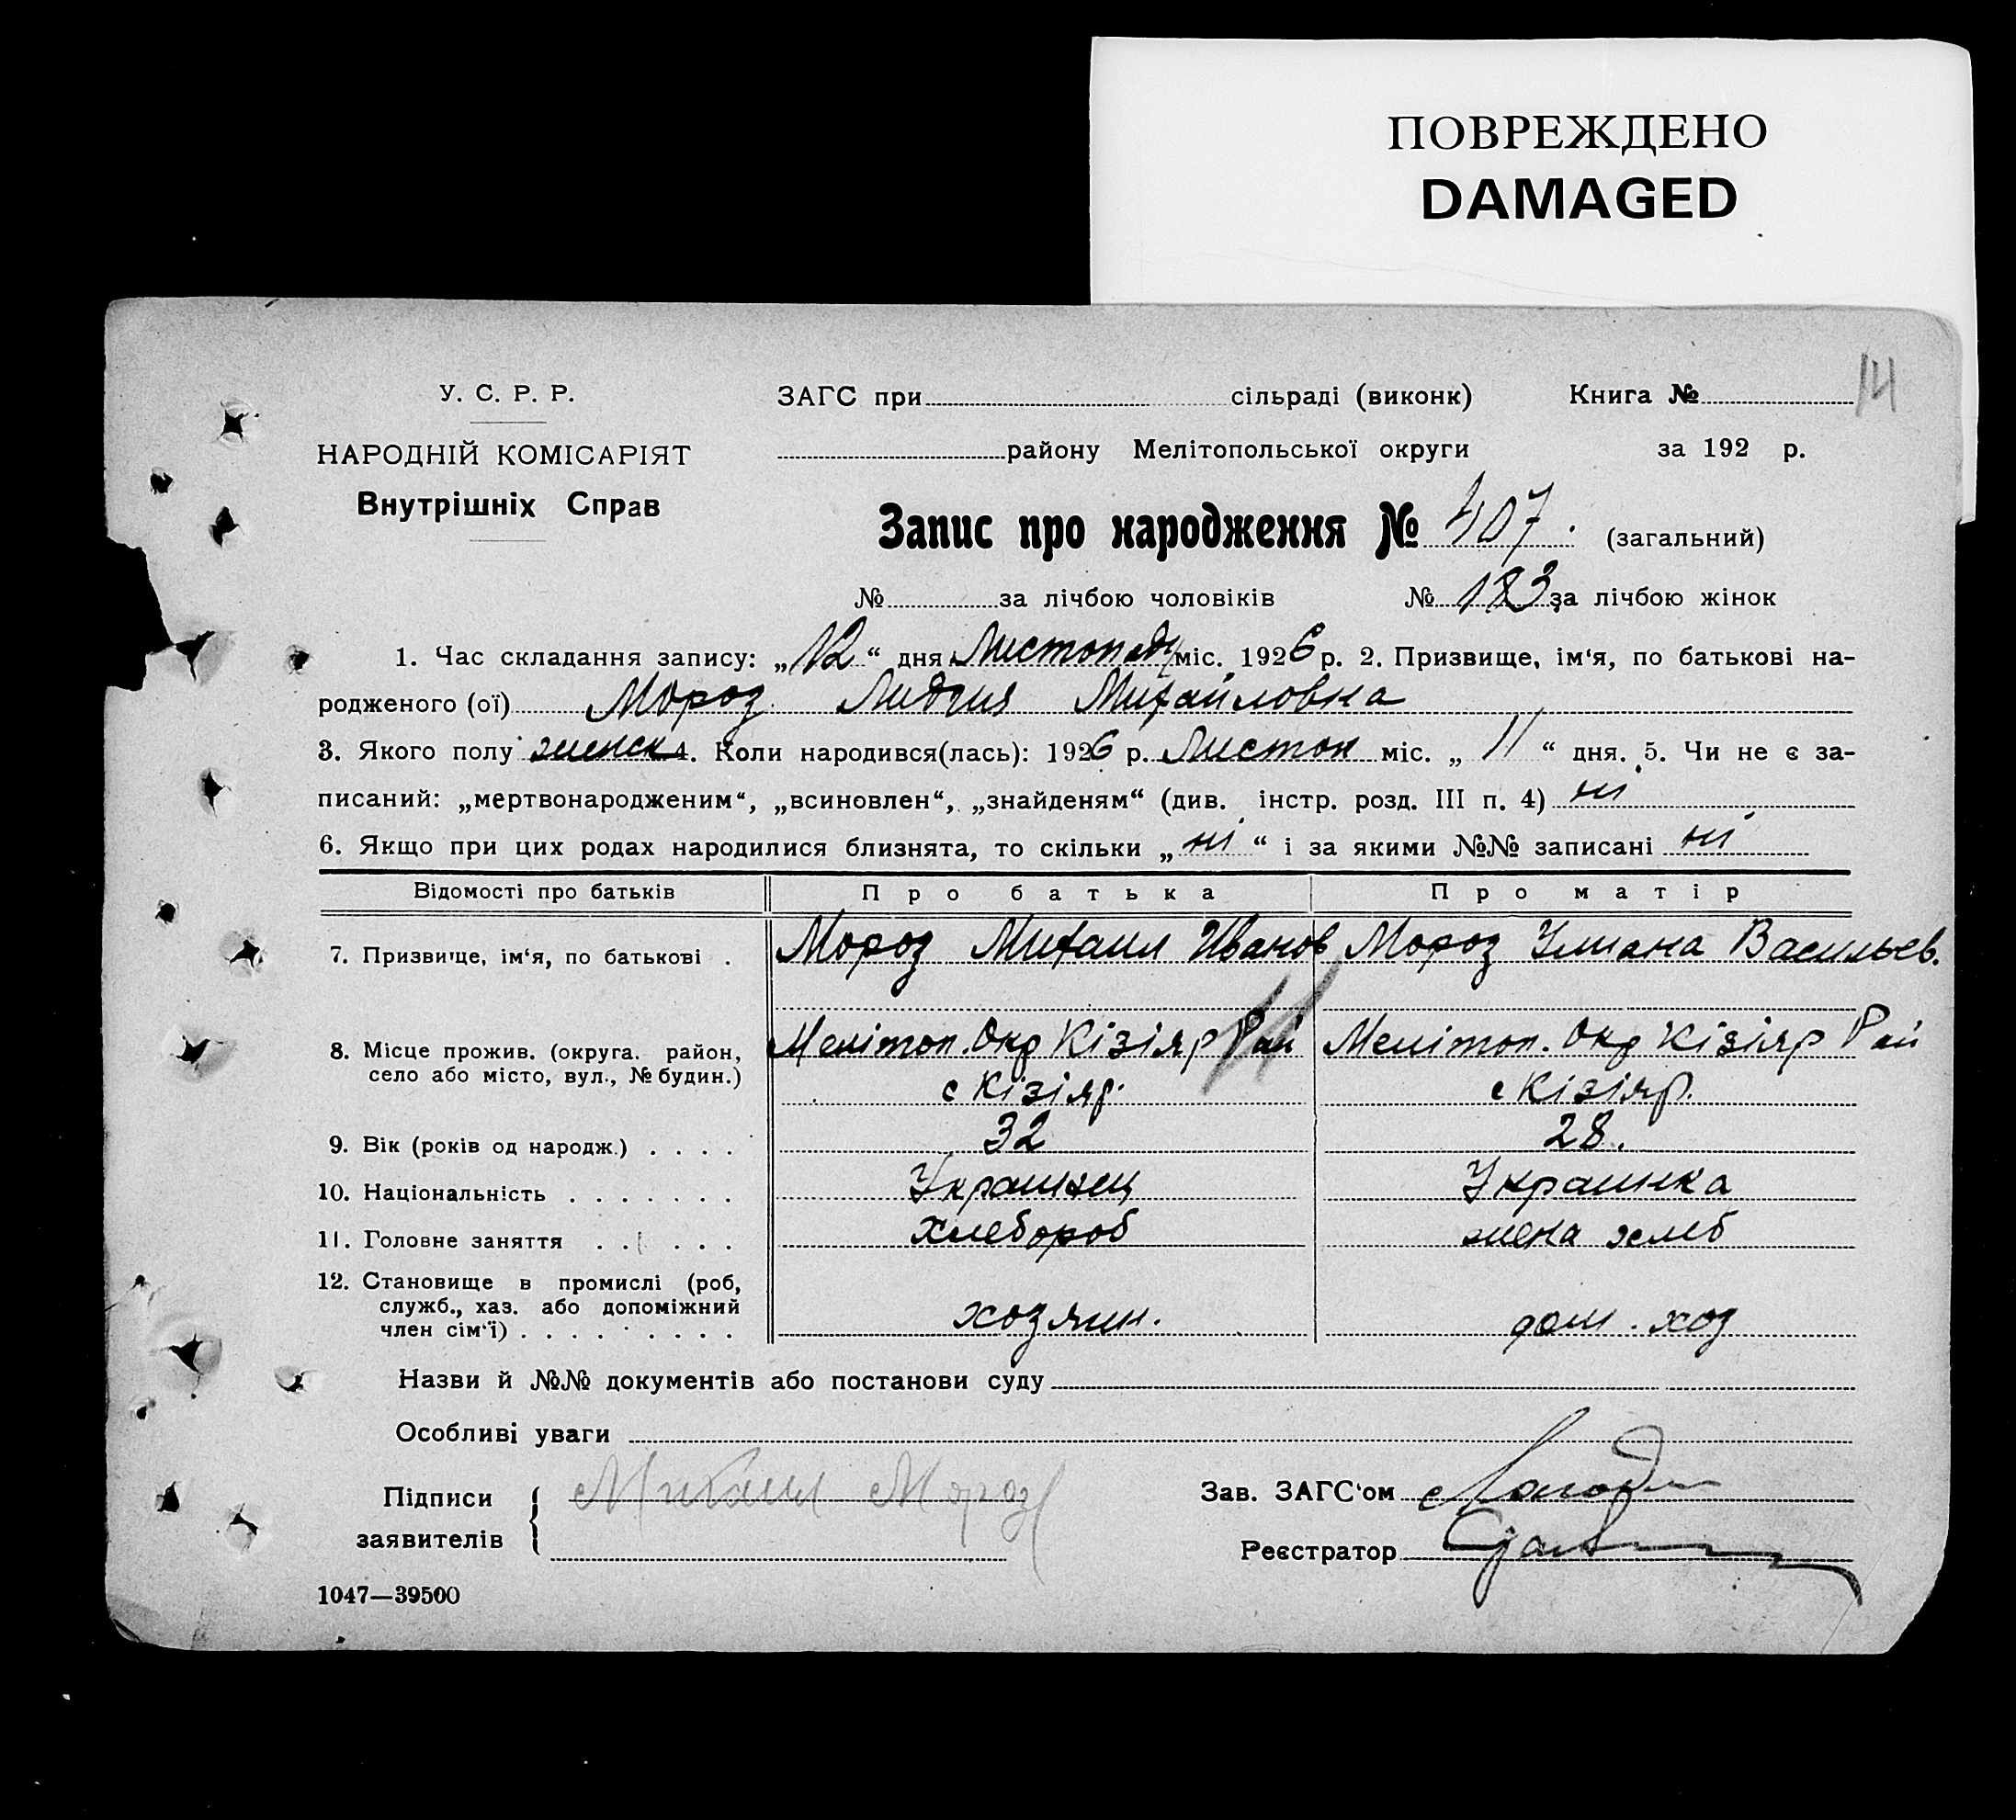 ПОВРЕЖДЕНО
DAMAGED
14
У. С. Р. Р.
НАРОДНІЙ КОМІСАРІЯТ
Внутрішніх Справ
ЗАГС при сільраді (виконк) Книга №
району Мелітопольської округи за 192 р.
Запис про народження № 407. (загальний)
№ за лічбою чоловіків № 183 за лічбою жінок
1. Час складання запису: „12“ дня Листопаду міс. 1926 р. 2. Призвище, ім‘я, по батькові на-
родженого (ої) Мороз Лидия Михайловка
3. Якого полу женск 4. Коли народився(лась): 1926 р. Листоп міс. „11“ дня. 5. Чи не є за-
писаний: „мертвонародженим“, „всиновлен“, „знайденям“ (див. інстр. розд. III п. 4) ні
6. Якщо при цих родах народилися близнята, то скільки „ні“ і за якими №№ записані ні
Відомості про батьків Про батька Про матір
7. Призвище, ім‘я, по батькові . Мороз Михаил Иванов Мороз Улиана Васильев.
14
8. Місце прожив. (округа. район, Меліtоп. Окр Кізіяр Рай Меліtоп. Окр Кізіяр Рай
село або місто, вул., № будин.) с Кізіяр. с Кізіяр.
9. Вік (років од народж.) . . . . 32 28.
10. Національність . . . . . . . Украинец Украинка
11. Головне заняття . . . . . Хлебороб жена хлеб
12. Становище в промислі (роб,
служб., хаз. або допоміжний
член сім‘ї) . . . . . . . . . хозяин. дом. хоз
Назви й №№ документів або постанови суду
Особливі уваги
Підписи
заявителів
Михаил Мороз
Зав. ЗАГС‘ом
Реєстратор
1047—39500